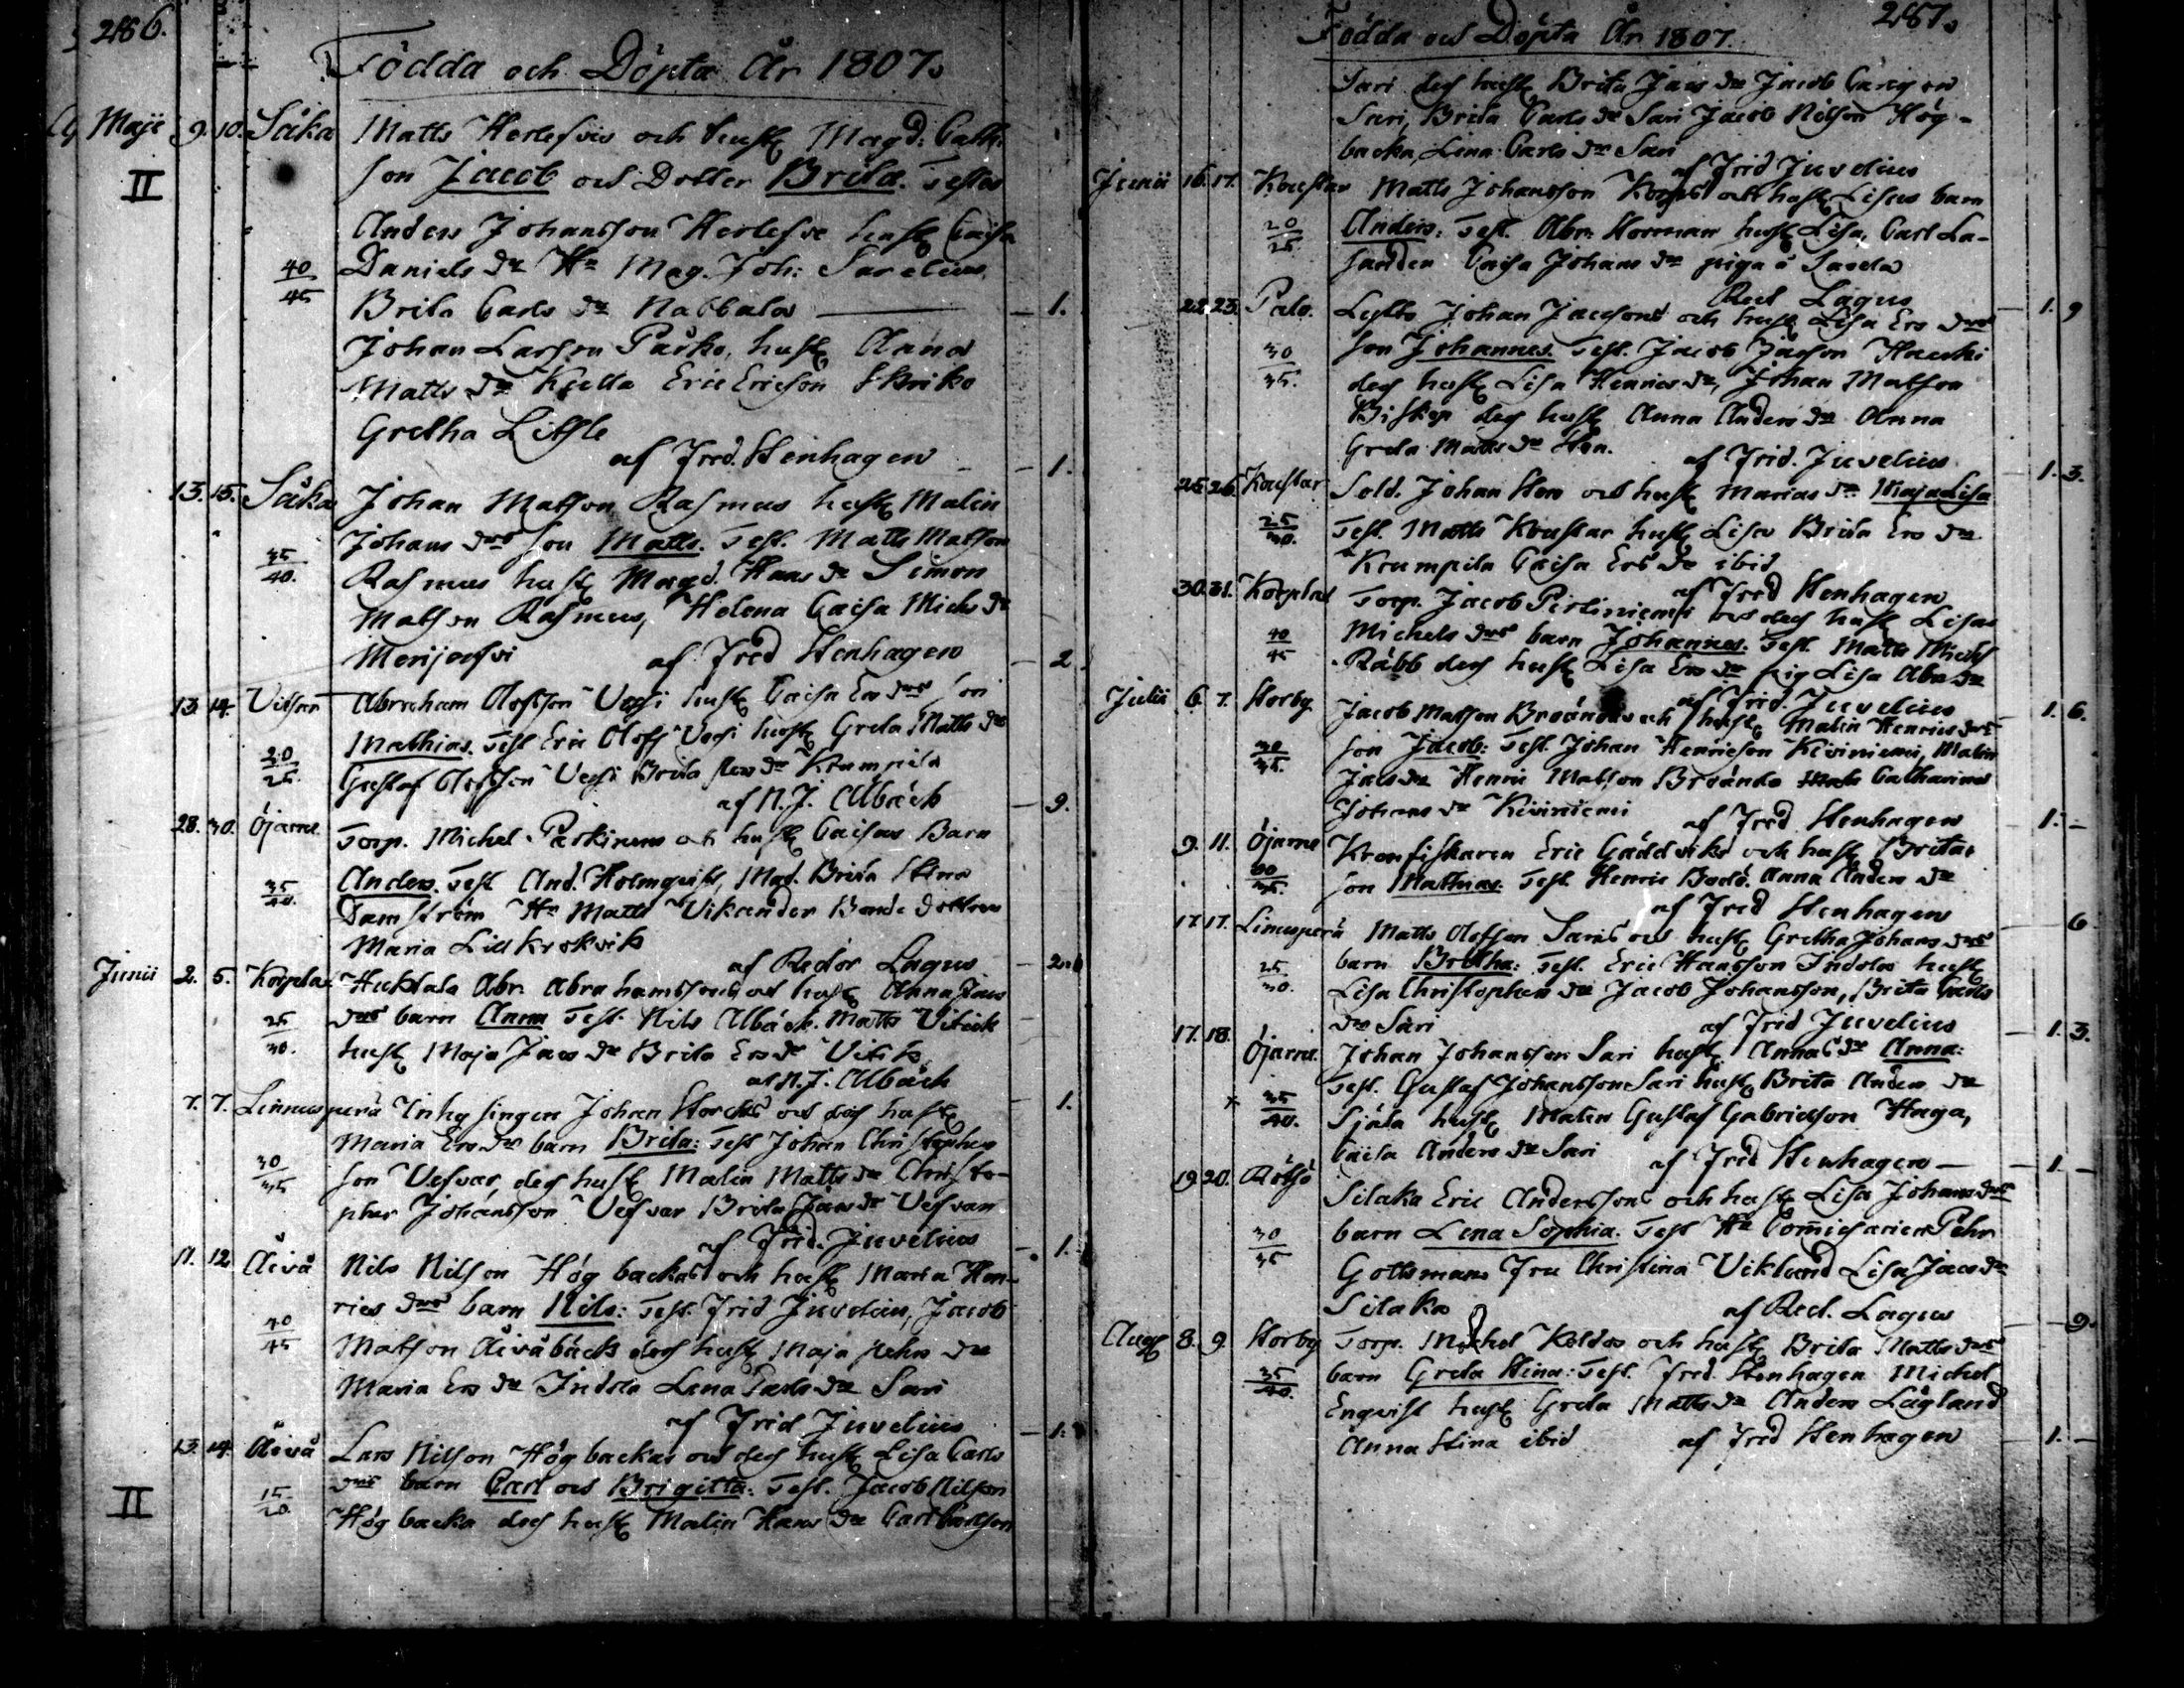 286.
Födda och Döpta År 1807.
Maji 9. 10. Såka Matts Herlefvis och hust Magd: Cath:
II son Jacob och Dotter Brita. Testes
Anders Johansson Herlefve hust Caisa
40/45 Daniels dr Hr Mag. Joh:
Brita Carls dr Nabbala — 1.
Johan Larson Påsko, hust Anna
Matts dr Eric Ericson Skriko
Gretha Litsle
af Fred. Stenhagen — 1.
13. 15. Såka Johan Matson Rasmus hust Malin
Johans drs son Matts. Test. Matts Matson
35/40. Rasmus hust Magd. Hans dr Simon
Matson Rasmus, Helena Caisa Michs dr
Merijerfvi af Fred Stenhagen — 2
13. 14. Vitsar Abraham Olofsson hust Caisa Ers drs son
Mathias. Test Eric Olofs hust Greta Matts dr
20/25 Gustaf Olofsson Brita dr Krumpila
af N. J. Albäck — 9.
28. 30. Öjarne Torp. Michel och hust Caisas Barn
35/40. Anders. Test And. Holmqvist, Mad. Brita Stina
Damström Hr Matts Vikander Bonde dottren
Maria Lill Krokvik
af Rector Lagus — 2.
Junii 2. 5. Korplax Huktala Abr. Abrahamssons och hust Anna Jacs
25/30. drs barn Anna Test. Nils Albäck. Matts Vitick
hust Maja Jacs dr Brita Ers dr Vitick
af N. J. Albäck
7. 7. Linnuspera Inhysingen Johan Storchs och des hust — 1.
Maria Ers drs barn Brita: Test Johan Christophers
30/35 son Vesvar, des hust Malin Matts dr Christo-
pher Johansson Vesvar Brita Jacs dr Vesvar
af Frid. Juvelius — 1.
11. 12. Åivå Nils Nilson Högbackas och hust Maria Hen-
rics drs barn Nils: Test. Frid Juvelius, Jacob
40/45 Matson Åivåbäck des hust Maja Pehrs dr
Maria Ers dr Indola Lena Carls dr Sari
af Frid Juvelius — 1.
13. 14. Åivå Lars Nilson Högbackas och des hust Lisa Carls
15/20. drs barn Carl och Brigitta: Test. Jacob Nilson
II Högbacka des hust Malin Hans dr Carl Carlson
287.
Födda och Döpta År 1807.
Sari des hust Brita Jacs dr Jacob
Sari, Brita Carls dr Sari Jacob Nilson Hög-
backa, Lena Carls dr Sari
af Frid Juvelius
Junii 16. 17. Koustar Matts Johansson och hust Lisas barn
20/25. Anders: Test. Abr. Norrman hust Lisa, Carl La-
Caisa Johans dr piga å
Rect Lagus — 1. 9
22. 23. Palo. Lytts Johan Jacsons och hust Lisa Ers drs
30/35. son Johannes. Test. Jacob Jacson Hauki
des hust Lisa Henrics dr, Johan Matson
Biskop des hust Anna Anders dr Anna
Greta Matts dr Sten.
af Frid. Juvelius — 1. 3.
25. 26. Koustar Sold. Johan Sten och hust Marias dr Maja Lisa
25/30. Test. Matts Koustar hust Lisa Brita Ers dr
Krumpila Caisa Ers dr ibid
af Fred Stenhagen
30. 31. Korplax Torp. Jacob Pirtiniemi och des hust Lisas
40/45 Michels drs barn Johannes. Test Matts Michs
Räbb des hust Lisa Ers dr pig Lisa Abr. dr
af Frid. Juvelius — 1. 6.
Julii 6. 7. Storby Jacob Matson Broända och hust Malin Henrics drs
30/35. son Jacob: Test. Johan Henricson Kiviniemi, Malin
Jacs dr Henric Matson Broända Catharina
Johans dr Kiviniemi
af Fred Stenhagen — 1. —
9. 11. Öjarne Kronfiskaren Eric Gäddviks och hust Britas
30/35. son Mathias. Test. Henric Bodö. Anna Anders dr
af Fred Stenhagen
17. 17. Linnusperä Matts Olofson Saris och hust Gretha Johans drs 6
25/30. barn Bretha: Test. Eric Hansson Indola hust
Lisa Christophers dr Jacob Johansson, Brita Carls
dr Sari af Frid Juvelius — 1. 3.
17. 18. Öjarne. Johan Johansson Sari hust Annas dr Anna:
Test. Gustaf Johansson Sari hust Brita Anders dr
35/40. Själa hust Malin Gustaf Gabrielson Haga,
Caisa Anders dr Sari af Fred Stenhagen — 1. —
19. 20. Rötsö Silaka Eric Anderssons och hust Lisa Johans drs
30/35 barn Lena Sophia. Test Hr Commissarien Pehr
Gottsman Fru Christina Viklund Lisa Jacs dr
Silaka af Rect. Lagus 9.
Aug 8. 9. Storby Torp. Michel Koldos och hust Brita Matts drs
35/40. barn Greta Stina: Test. Fred. Stenhagen Michel
Enqvist hust Greta Matts dr Anders Lågland
Anna Stina ibid af Fred Stenhagen — 1. —